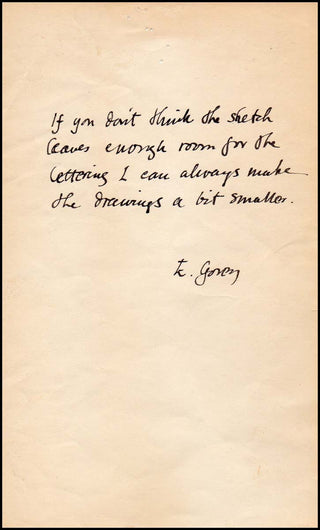 If you don't think the sketch
leaves enough room for the
lettering I can always make
the drawings a bit smaller.
E. Gorey